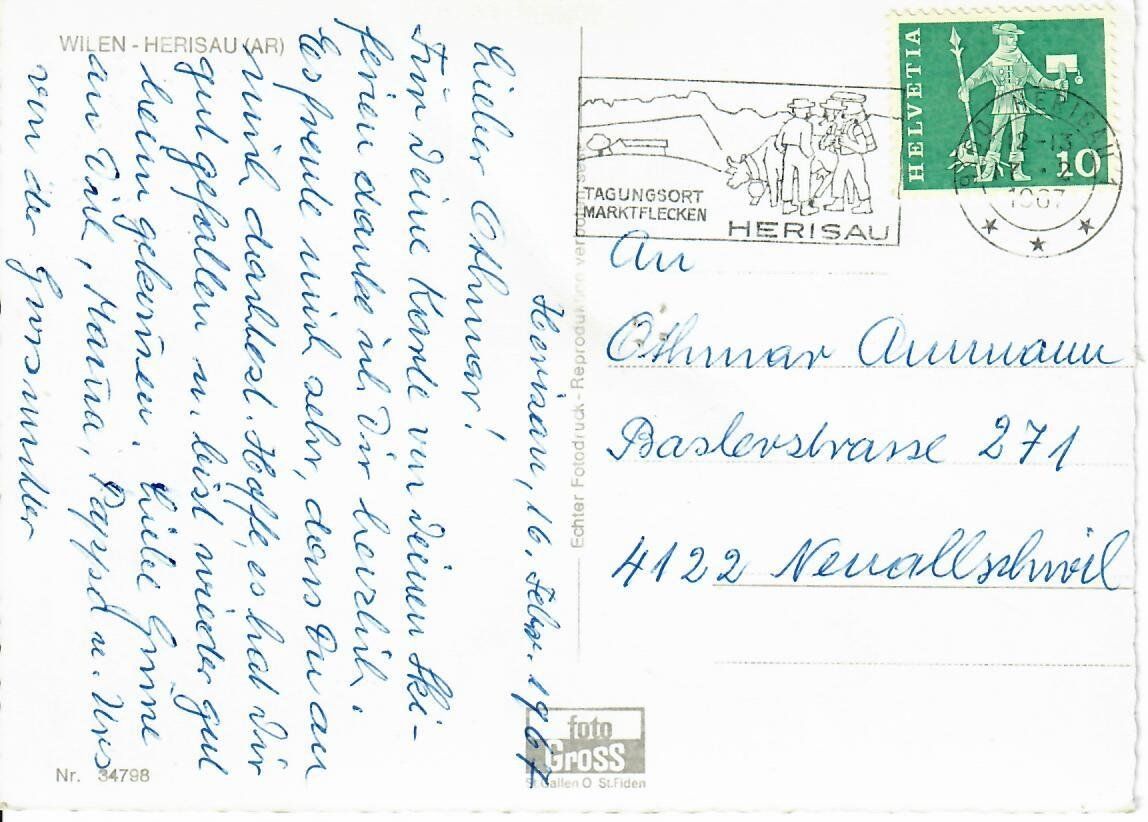 WILEN - HERISAU (AR)
Herisau, 16. Febr. 1967
Lieber Othmar!
Für Deine Karte von Deinen Ski-
ferien danke ich Dir herzlich.
Es freute mich sehr, dass Du an
mich dachtest. Hoffe, es hat Dir
gut gefallen u. bist wieder gut
heim gekommen. Liebe Grüsse
an Dich, Mama, Pappa u. Urs
von der Grossmutter
Nr. 34798
Echter Fotodruck - Reproduktion verboten
foto
GROSS
St. Gallen O St. Fiden
TAGUNGSORT
MARKTFLECKEN
HERISAU
HELVETIA
10
HERISAU
-13
1967
An
Othmar Ammann
Baslerstrasse 271
4122 Neuallschwil